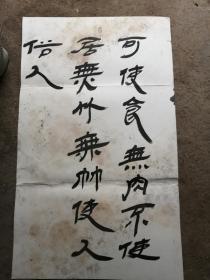 可使食無肉不使
居無竹無竹使人
俗人